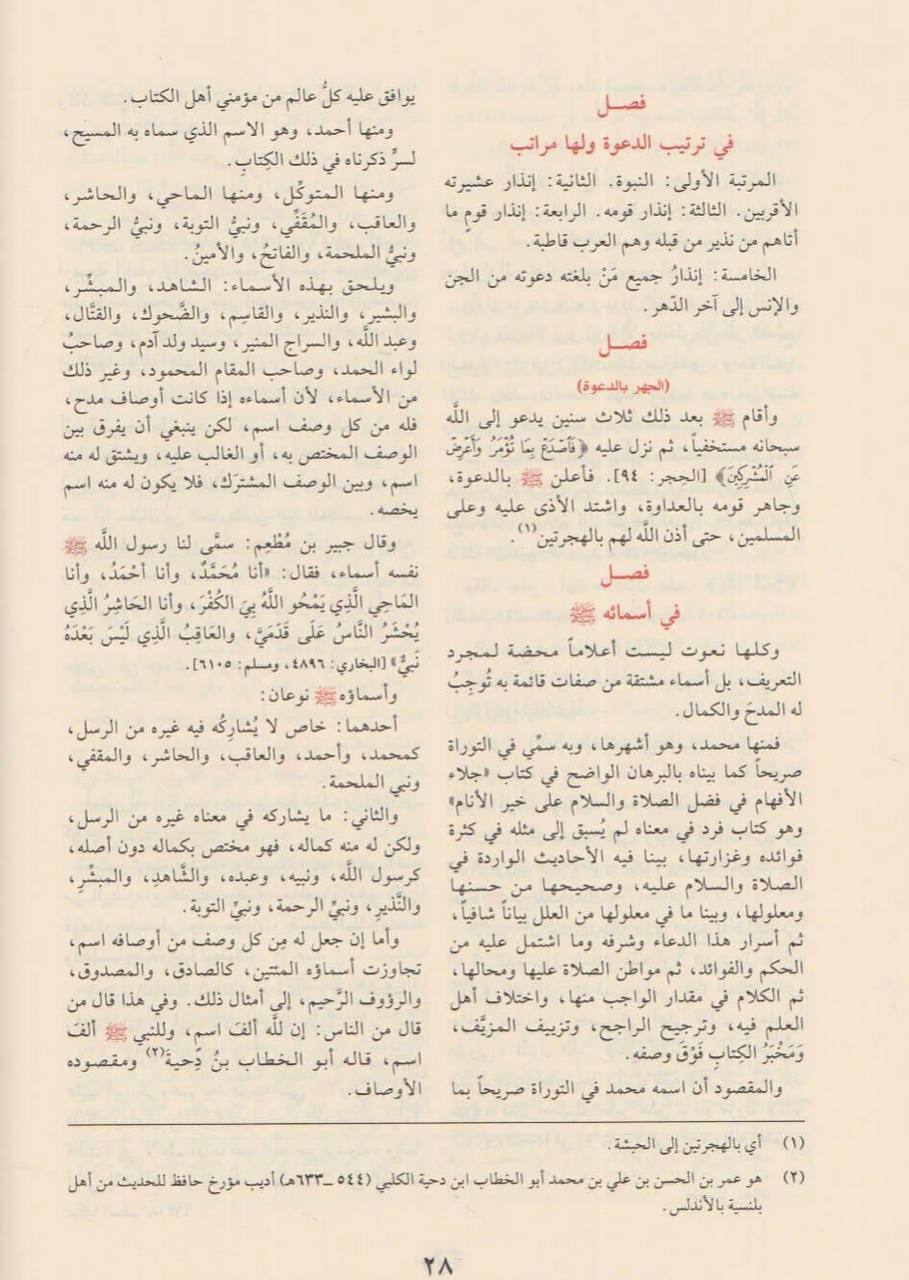 فصل
في ترتيب الدعوة ولها مراتب
المرتبة الأولى: النبوة. الثانية: إنذار عشيرته
الأقربين. الثالثة: إنذار قومه. الرابعة: إنذار قومٍ ما
أتاهم من نذير من قبله وهم العرب قاطبة.
الخامسة: إنذارُ جميع مَنْ بلغته دعوته من الجن
والإنس إلى آخر الدّهر.
فصل
(الجهر بالدعوة)
وأقام ﷺ بعد ذلك ثلاث سنين يدعو إلى اللَّه
سبحانه مستخفياً، ثم نزل عليه ﴿فَاصْدَعْ بِمَا تُؤْمَرُ وَأَعْرِضْ
عَنِ الْمُشْرِكِينَ﴾ [الحجر: ٩٤]. فأعلن ﷺ بالدعوة،
وجاهر قومه بالعداوة، واشتد الأذى عليه وعلى
المسلمين، حتى أذن اللَّه لهم بالهجرتين(١).
فصل
في أسمائه ﷺ
وكلها نعوت ليست أعلاماً محضة لمجرد
التعريف، بل أسماء مشتقة من صفات قائمة به تُوجِبُ
له المدحَ والكمال.
فمنها محمد، وهو أشهرها، وبه سمِّي في التوراة
صريحاً كما بيناه بالبرهان الواضح في كتاب «جلاء
الأفهام في فضل الصلاة والسلام على خير الأنام»
وهو كتاب فرد في معناه لم يُسبق إلى مثله في كثرة
فوائده وغزارتها، بينا فيه الأحاديث الواردة في
الصلاة والسلام عليه، وصحيحها من حسنها
ومعلولها، وبينا ما في معلولها من العلل بياناً شافياً،
ثم أسرار هذا الدعاء وشرفه وما اشتمل عليه من
الحكم والفوائد، ثم مواطن الصلاة عليها ومحالها،
ثم الكلام في مقدار الواجب منها، واختلاف أهل
العلم فيه، وترجيح الراجح، وتزييف المزيَّف،
وَمَخْبَرُ الكِتابِ فَوْقَ وصفه.
والمقصود أن اسمه محمد في التوراة صريحاً بما
يوافق عليه كلُّ عالم من مؤمني أهل الكتاب.
ومنها أحمد، وهو الاسم الذي سماه به المسيح،
لسرٍّ ذكرناه في ذلك الكِتابِ.
ومنها المتوكِّل، ومنها الماحي، والحاشر،
والعاقب، والمُقَفِّي، ونبيُّ التوبة، ونبيُّ الرحمة،
ونبيُّ الملحمة، والفاتحُ، والأمينُ.
ويلحق بهذه الأسماء: الشاهد، والمبشِّر،
والبشير، والنذير، والقاسِم، والضَّحوك، والقتَّال،
وعبد اللَّه، والسراج المنير، وسيد ولد آدم، وصاحبُ
لواء الحمد، وصاحب المقام المحمود، وغير ذلك
من الأسماء، لأن أسماءه إذا كانت أوصاف مدح،
فله من كل وصف اسم، لكن ينبغي أن يفرق بين
الوصف المختص به، أو الغالب عليه، ويشتق له منه
اسم، وبين الوصف المشترَك، فلا يكون له منه اسم
يخصه.
وقال جبير بن مُطْعِم: سمَّى لنا رسول اللَّه ﷺ
نفسه أسماء، فقال: «أنا مُحَمَّدٌ، وأنا أحْمَدُ، وأنا
المَاحِي الَّذِي يَمْحُو اللَّهُ بِيَ الكُفْرَ، وأنا الحَاشِرُ الَّذِي
يُحْشَرُ النَّاسُ عَلَى قَدَمَيَّ، والعَاقِبُ الَّذِي لَيْسَ بَعْدَهُ
نَبِيٌّ» [البخاري: ٤٨٩٦، ومسلم: ٦١٠٥].
وأسماؤه ﷺ نوعان:
أحدهما: خاص لا يُشارِكُه فيه غيره من الرسل،
كمحمد، وأحمد، والعاقب، والحاشر، والمقفي،
ونبي الملحمة.
والثاني: ما يشاركه في معناه غيره من الرسل،
ولكن له منه كماله، فهو مختص بكماله دون أصله،
كرسول اللَّه، ونبيه، وعبده، والشَّاهدِ، والمبشِّرِ،
والنَّذيرِ، ونبيِّ الرحمة، ونبيِّ التوبة.
وأما إن جعل له مِن كل وصف من أوصافه اسم،
تجاوزت أسماؤه المئتين، كالصادق، والمصدوق،
والرؤوف الرَّحيم، إلى أمثال ذلك. وفي هذا قال من
قال من الناس: إن للَّه ألفَ اسم، وللنبي ﷺ ألفَ
اسم، قاله أبو الخطاب بنُ دِحيةَ(٢) ومقصوده
الأوصاف.
(١) أي بالهجرتين إلى الحبشة.
(٢) هو عمر بن الحسن بن علي بن محمد أبو الخطاب ابن دحية الكلبي (٥٤٤ ـ ٦٣٣هـ) أديب مؤرخ حافظ للحديث من أهل
بلنسية بالأندلس.
٢٨